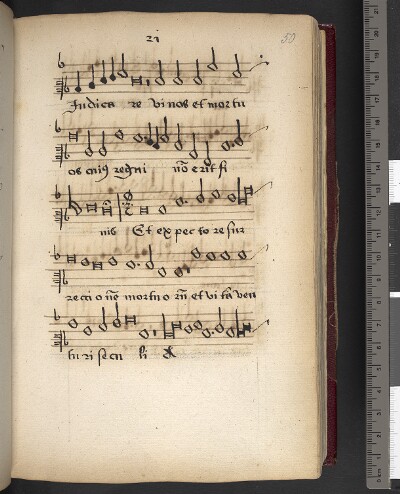 21
50
Judica re vivos et mortu
os cuius regni nō erit fi
nis Et expecto resur
recciōne mortuorū et vitā ven
turi seculi A